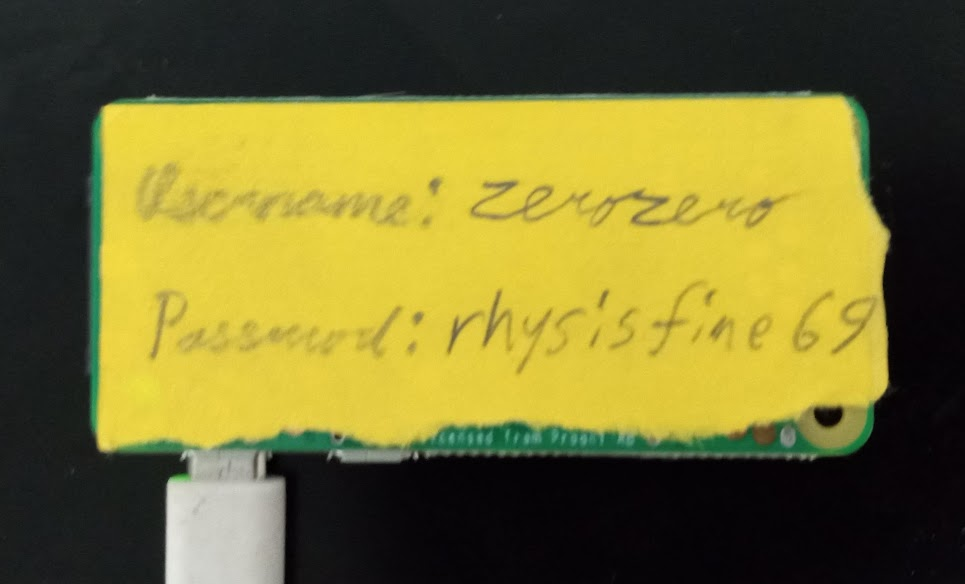 Username: zerozero
Password: rhysisfine69
Licensed from Proant AB